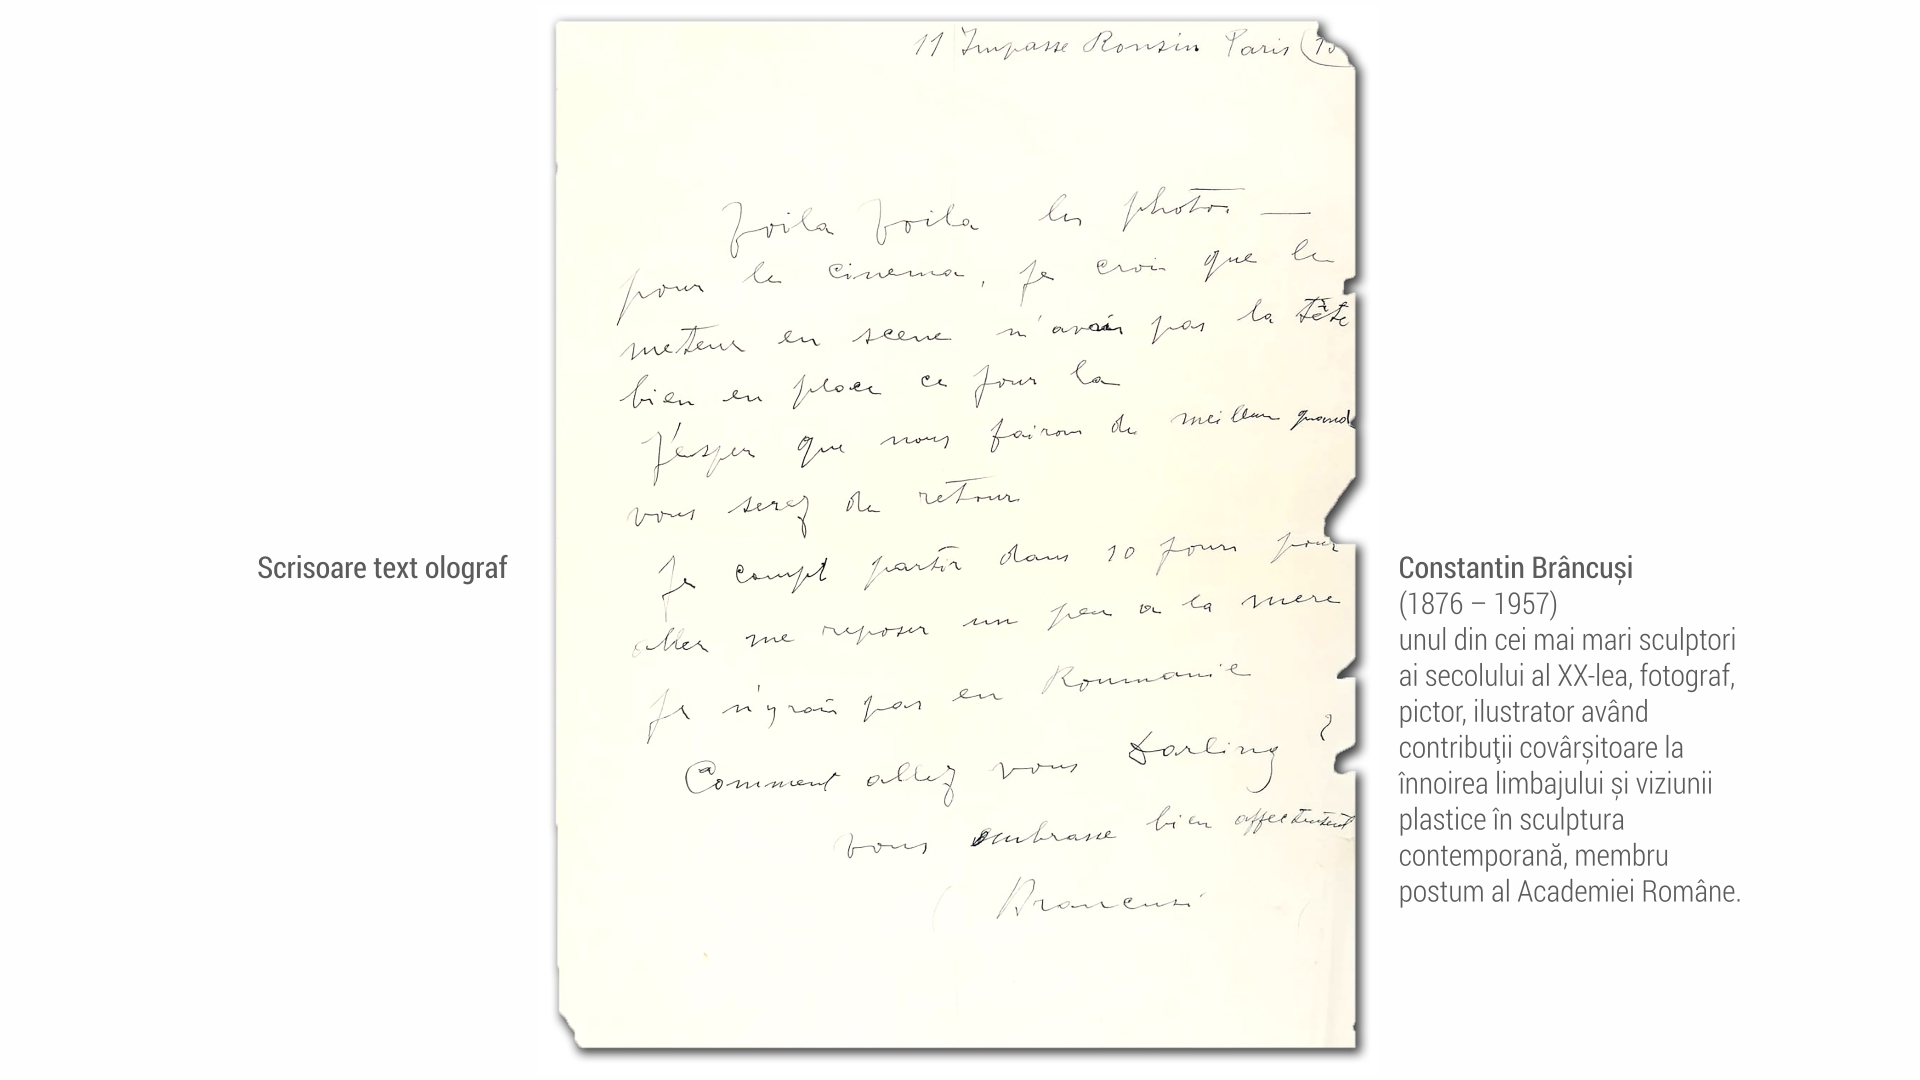 11 Impasse Ronsin Paris (15
Voila Voila les photos —
pour le cinema, je crois que le
meteur en scene n'avais pas la tête
bien en place ce jour la
J'esper que nous fairons de meilleur quand
vous serez de retour
Je compt partir dans 10 jours pour
aller me reposer un peu a la mere
Je n'yrais pas en Roumanie
Comment allez vous Darling ?
Vous embrasse bien
Brancusi
Scrisoare text olograf
Constantin Brâncuși
(1876 – 1957)
unul din cei mai mari sculptori
ai secolului al XX-lea, fotograf,
pictor, ilustrator având
contribuţii covârșitoare la
înnoirea limbajului și viziunii
plastice în sculptura
contemporană, membru
postum al Academiei Române.